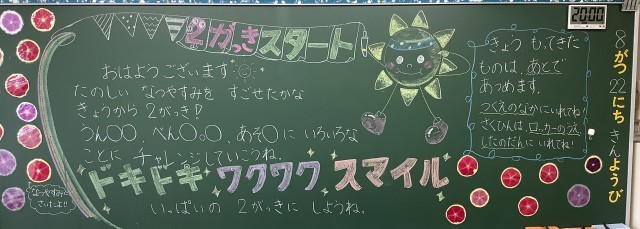 2がっきスタート
おはようございます
たのしい なつやすみを すごせたかな
きょうから 2がっき!
うん〇〇、べん〇〇〇、あそ〇に いろいろな
ことに チャレンジしていこうね。
ドキドキ ワクワク スマイル
いっぱいの 2がっきに しようね。
なつやすみも
さいたよ!!
きょう もってきた
ものは、あとで
あつめます。
つくえのなかにいれてね!
さくひんは、ロッカーのうえ
したのだんに いれてね!
20:00
8がつ22にち きんようび